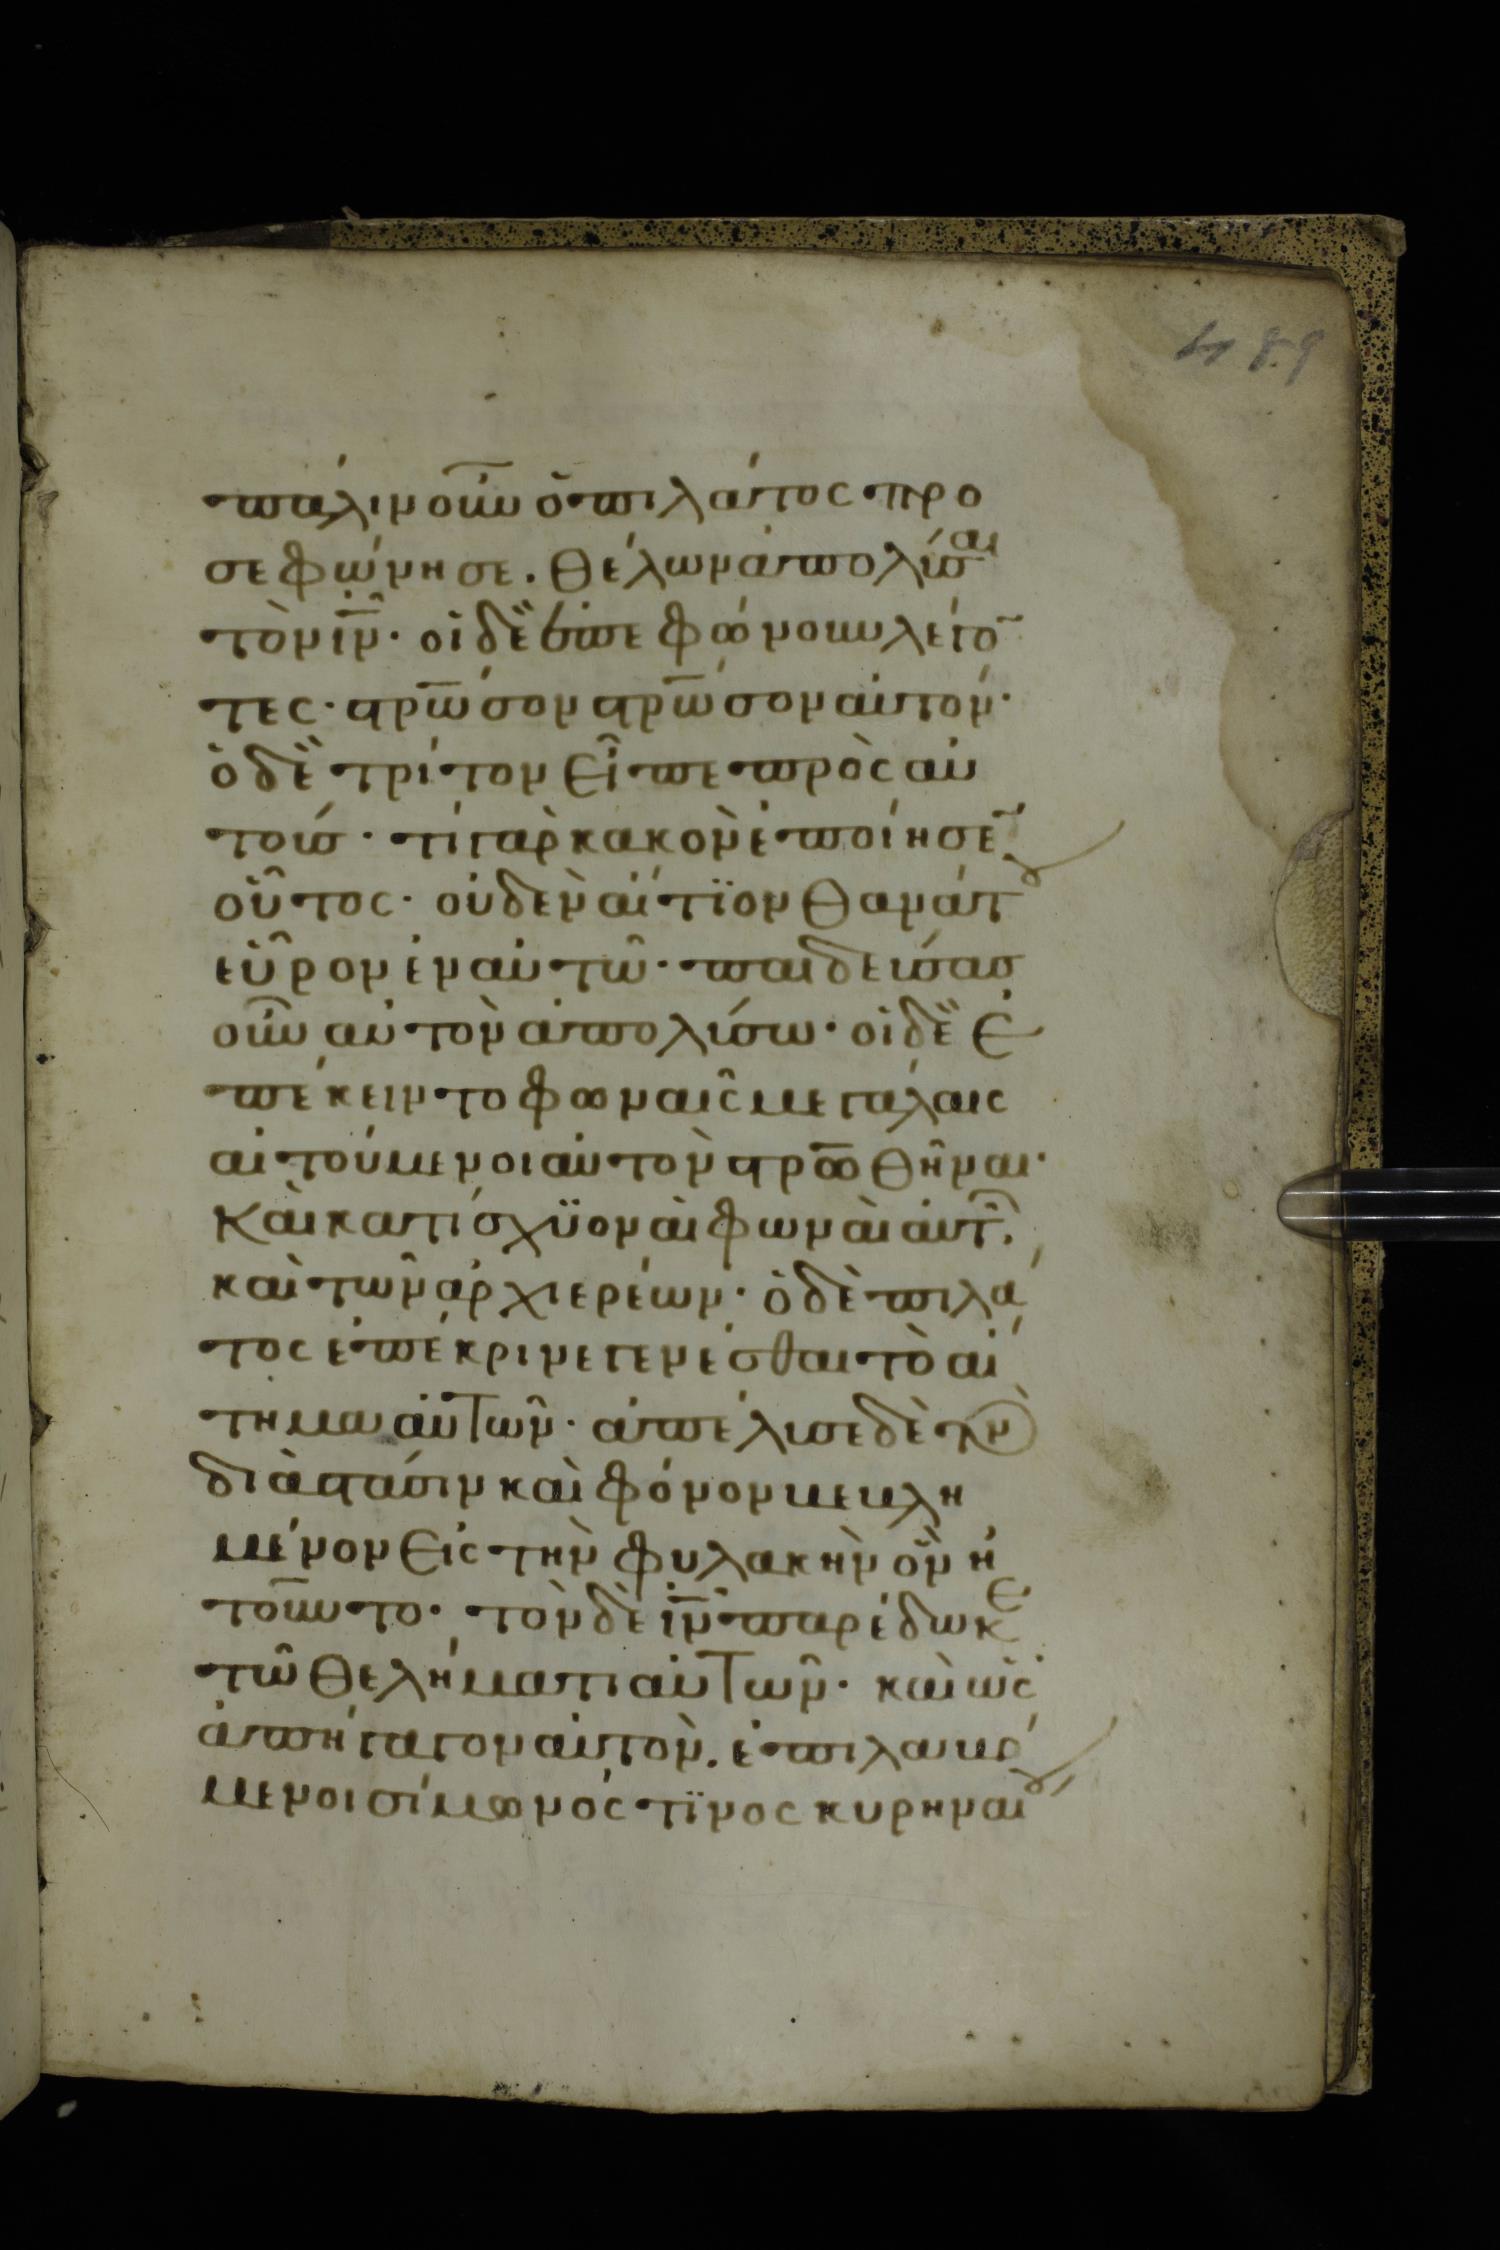 πάλιν οὖν ὁ πιλάτος προ
σεφώνησε. θέλων ἀπολύσαι
τὸν ιν̅· οἱ δὲ ἐπεφώνουν λέγο̅
τες· στρ̅ωσον στρ̅ωσον αὐτόν·
ὁ δὲ τρίτον εἶπε πρὸς αὐ
τούς· τί γὰρ κακὸν ἐποίησε̅
οὗτος· οὐδὲν αἴτϊον θανάτου
εὗρον ἐν αὐτῶ· παιδεύσας
οὖν αὐτὸν ἀπολύσω· οἱ δὲ ἐ
πέκειντο φωναῖς μεγάλαις
αἰτούμενοι αὐτὸν στρ̅ωθῆναι·
Καὶ κατίσχϋον αἱ φωναὶ αὐτ͂.
καὶ τῶν ἀρχιερέων· ὁ δὲ πιλά
τος ἐπέκρινε γενέσθαι τὸ αἴ
τημα αὐτῶν· ἀπέλυσε δὲ τὸν
διὰ στάσιν καὶ φόνον βεβλη
μένον εἰς τὴν φυλακὴν ὃν ἠ
τοῦντο· τὸν δὲ ιν̅ παρέδωκε
τῶ θελήματι αὐτῶν· καὶ ὡς
ἀπήγαγον αὐτὸν. ἐπιλαβό
μενοι σίμωνός τϊνος κυρηναίου